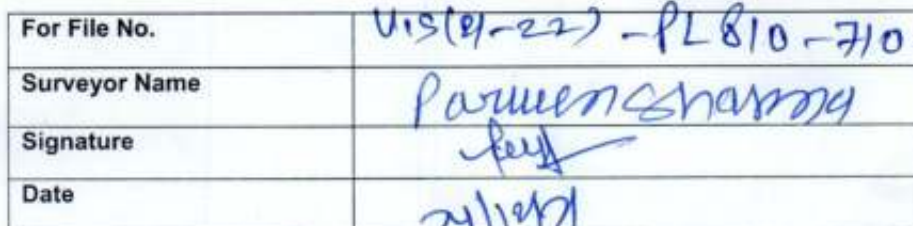 For File No. VIS(21-22)-PL810-710
Surveyor Name Parveen Sharma
Signature
Date